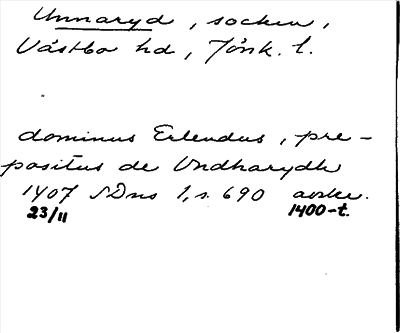 Unnaryd, socken,
Västbo hd, Jönk. l.
dominus Erlendus, pre-
positus de Vndharydh
1407 SDns 1, s. 690 avskr.
23/11 1400-t.